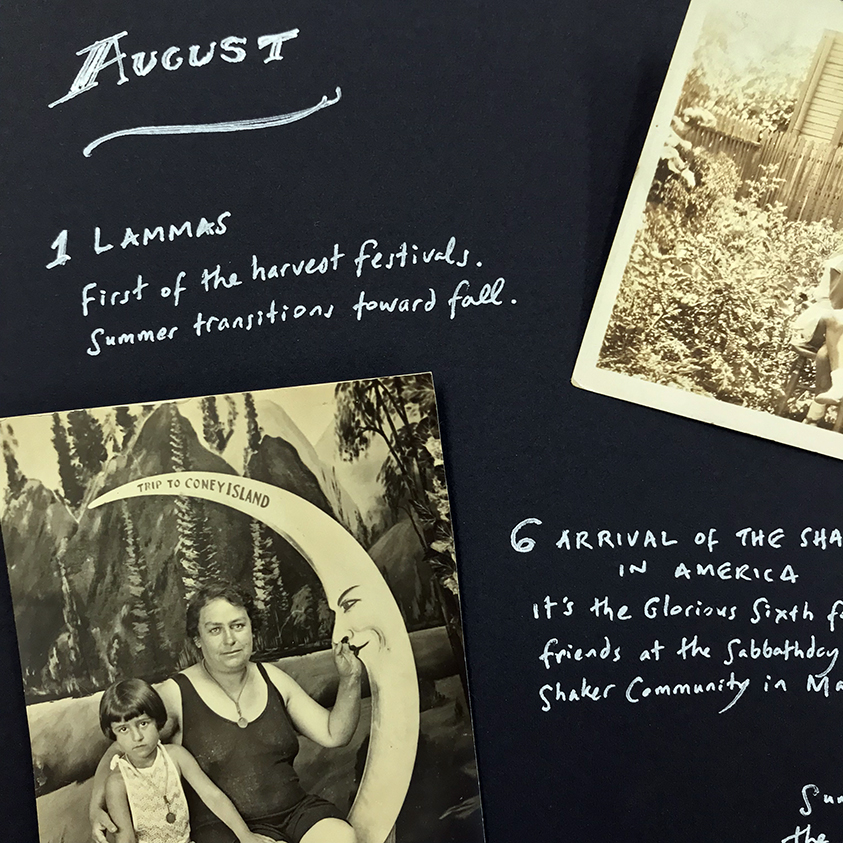 AUGUST
1 LAMMAS
First of the harvest festivals.
Summer transitions toward fall.
TRIP TO CONEY ISLAND
6 ARRIVAL OF THE SHA
IN AMERICA
It's the Glorious Sixth f
friends at the Sabbathday
Shaker Community in Ma
the